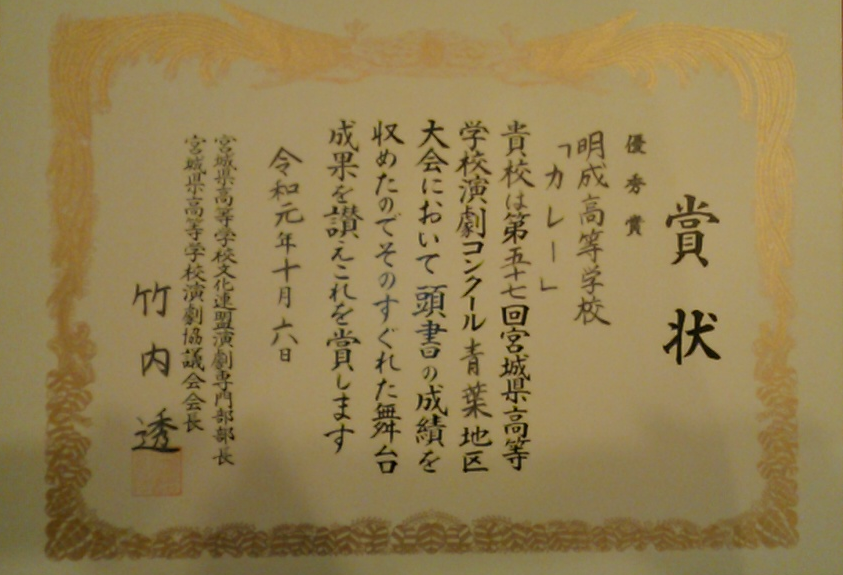 賞状
優秀賞
明成高等学校
「カレー」
貴校は第五十七回宮城県高等
学校演劇コンクール青葉地区
大会において頭書の成績を
収めたのでそのすぐれた舞台
成果を讃えこれを賞します
令和元年十月六日
宮城県高等学校文化連盟演劇専門部部長
宮城県高等学校演劇協議会会長
竹内透